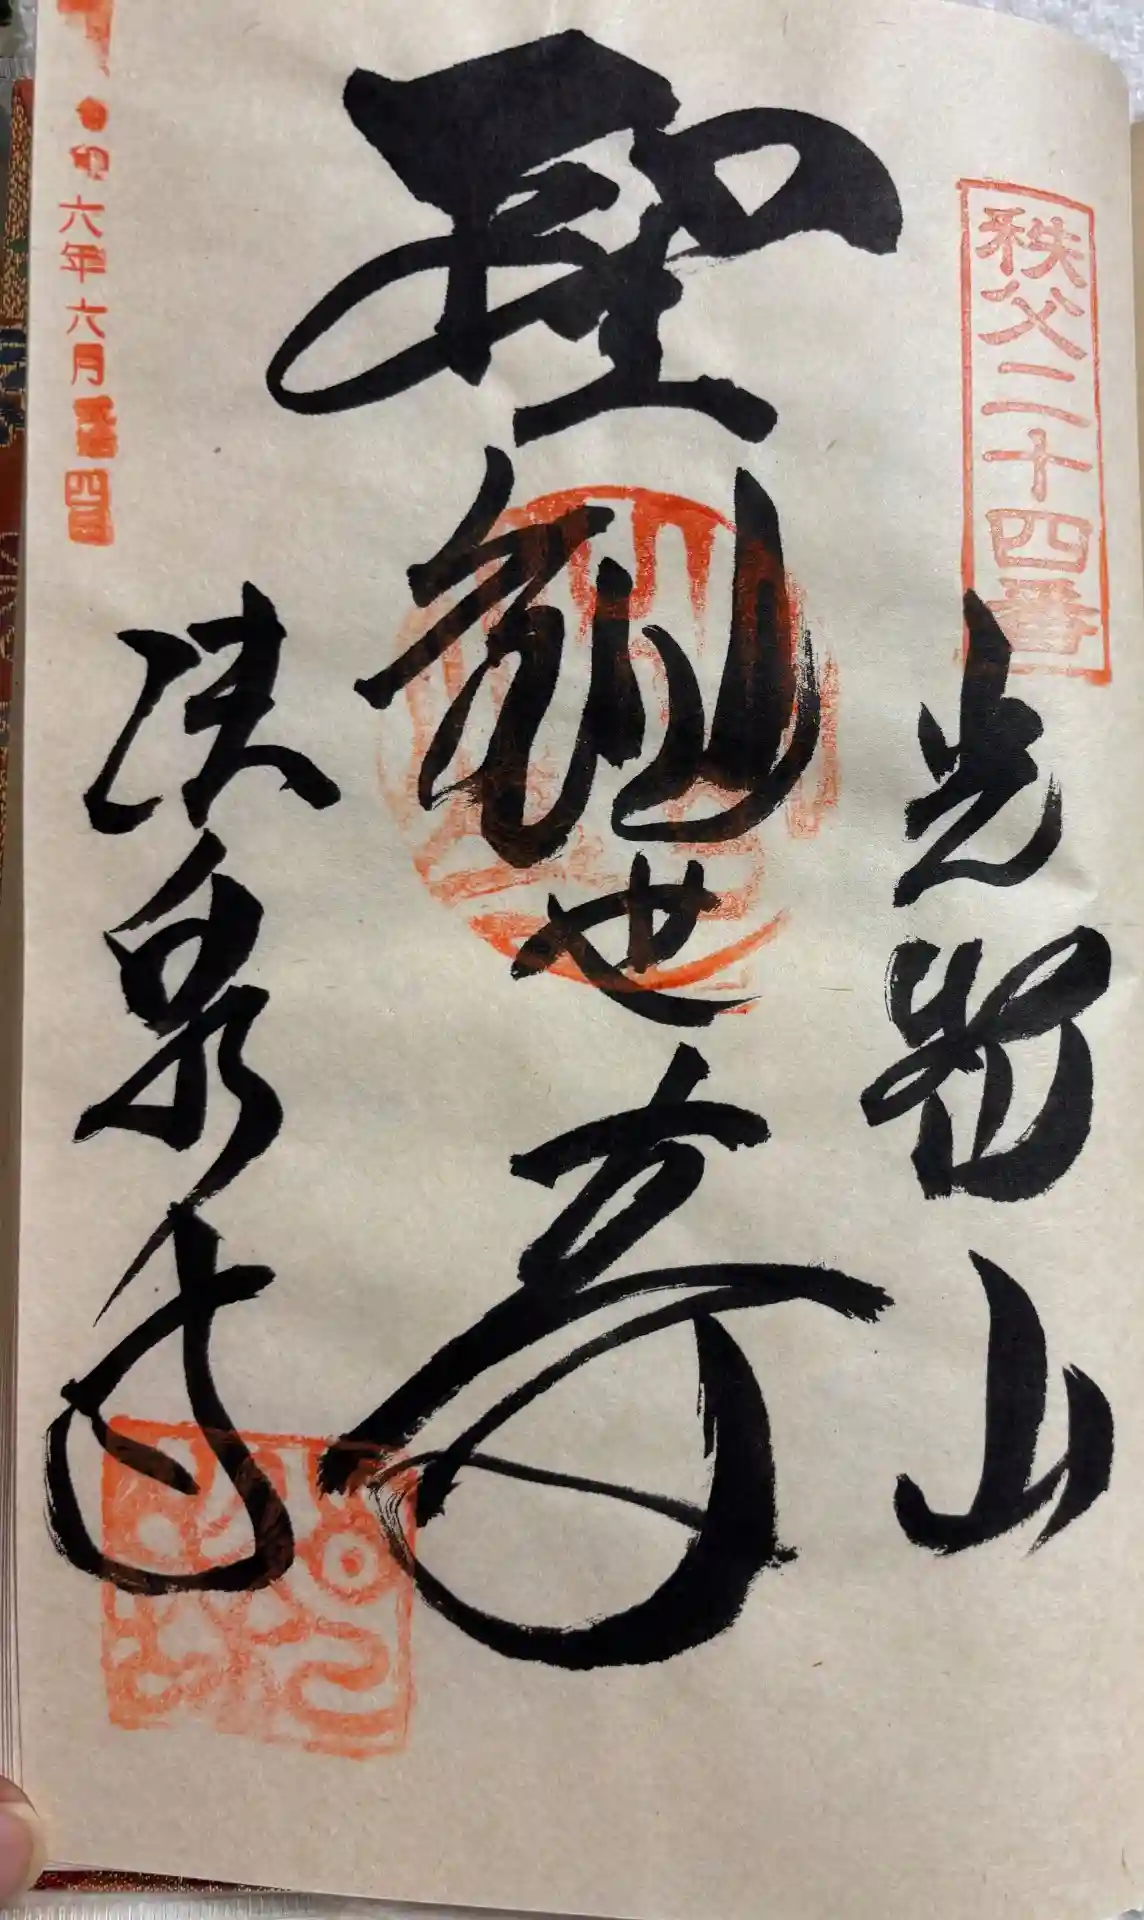 秩父二十四番
光智山
聖観世音
法泉寺
令和六年六月
四日